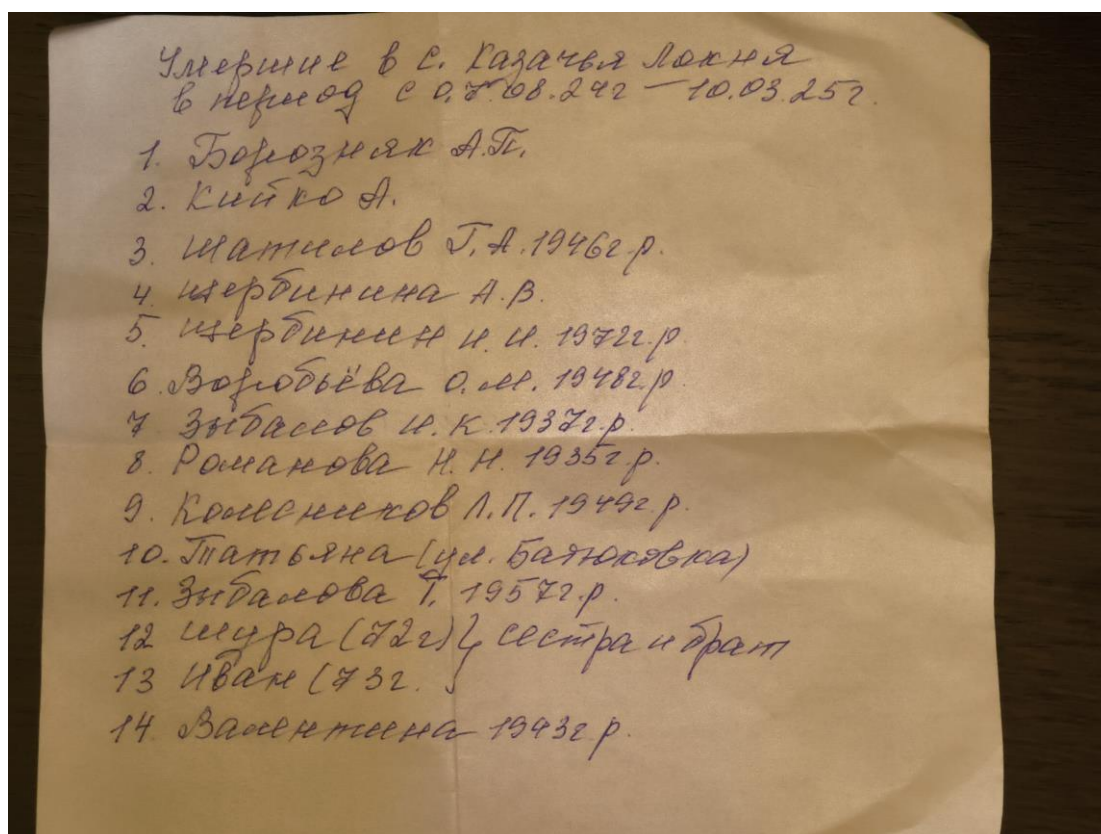 Умершие в с. Казачья Локня
в период с 0.7.08.24г – 10.03.25г.
1. Борозняк А.П.
2. Кийко А.
3. Шатилов Г.А. 1946г.р.
4. Щербинина А.В.
5. Щербинин И.И. 1972г.р.
6. Воробьёва О.М. 1948г.р.
7 Зыбалов И.К. 1937г.р.
8. Романова Н.Н. 1935г.р.
9. Колесников Л.П. 1949г.р.
10. Татьяна (ул. Батюковка)
11. Зыбалова Т. 1957г.р.
12 Шура (72г) } сестра и брат
13 Иван (73г.
14. Валентина 1943г.р.